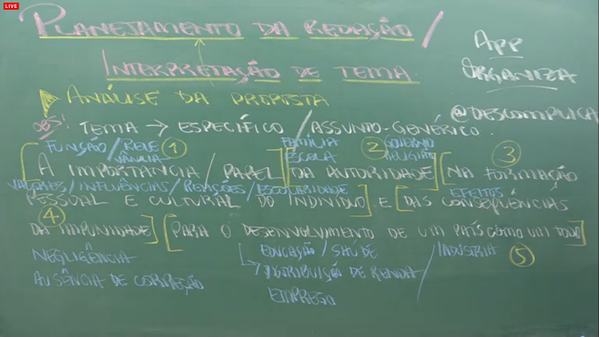 LIVE
PLANEJAMENTO DA REDAÇÃO /
INTERPRETAÇÃO DE TEMA
APP
ORGANIZA
@DESCOMPLICA
ANÁLISE DA PROPOSTA
OBS: TEMA → ESPECÍFICO / ASSUNTO - GENÉRICO.
FUNÇÃO / RELE
VÂNCIA
1
FAMÍLIA
ESCOLA
2
GOVERNO
RELIGIÃO
3
[A IMPORTÂNCIA / PAPEL] [DA AUTORIDADE] [NA FORMAÇÃO
VALORES / INFLUÊNCIAS / RELAÇÕES / ESCOLARIDADE
EFEITOS
PESSOAL E CULTURAL DO INDIVÍDUO] E [DAS CONSEQUÊNCIAS
4
DA IMPUNIDADE] [PARA O DESENVOLVIMENTO DE UM PAÍS COMO UM TODO]
NEGLIGÊNCIA
AUSÊNCIA DE CORREÇÃO
EDUCAÇÃO / SAÚDE
DISTRIBUIÇÃO DE RENDA
/ INDÚSTRIA
EMPREGO
5